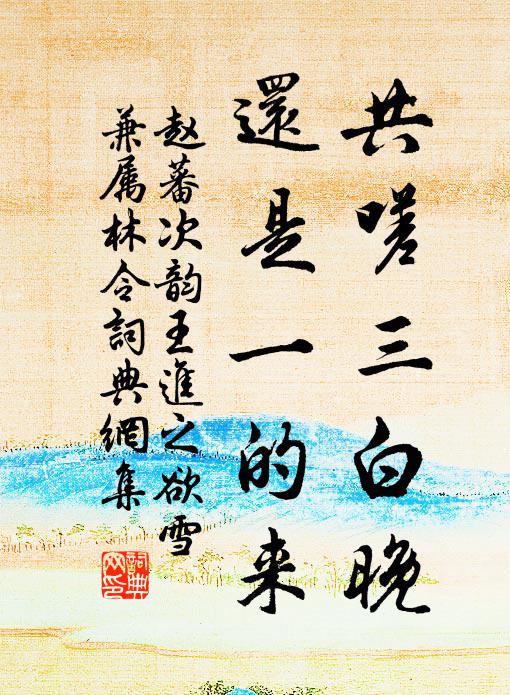 共嗟三白晚
還是一的来
赵蕃次韵王進之欲雪
兼属林令詞典網集